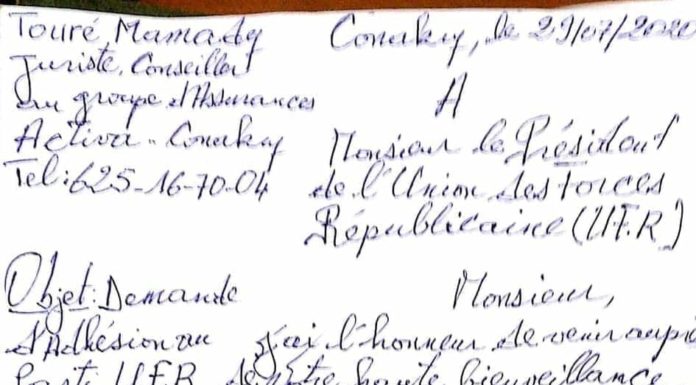 Touré Mamady
Conakry, le 29/07/2020
Juriste, Conseiller
au groupe d'Assurances
Activa - Conakry
Tel: 625-16-70-04
A
Monsieur le Président
de l'Union des Forces
Républicaine (U.F.R)
Objet: Demande
d'Adhésion au
Parti U.F.R
Monsieur,
j'ai l'honneur de venir auprè
de votre haute bienveillance